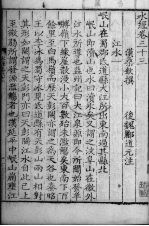 水經卷三十三
漢桑欽撰 後魏酈道元注
江水
岷山在蜀郡氐道縣大江所出東南過其縣北
岷山即瀆山也水曰瀆水矣又謂之汶阜山在徼外
江水所導也益州記曰大江泉源即今所聞始發羊
膊嶺下緣崖散漫小大百數殆未濫觴矣東南下百
餘里至白馬嶺而歷天彭闕亦謂之為天谷也秦昭
王以李冰為蜀守冰見氐道縣有天彭山兩山相對
其形如闕謂之天彭門亦曰天彭闕江水自此已上
至微弱所謂發源濫觴者也漢元延中岷山崩壅江